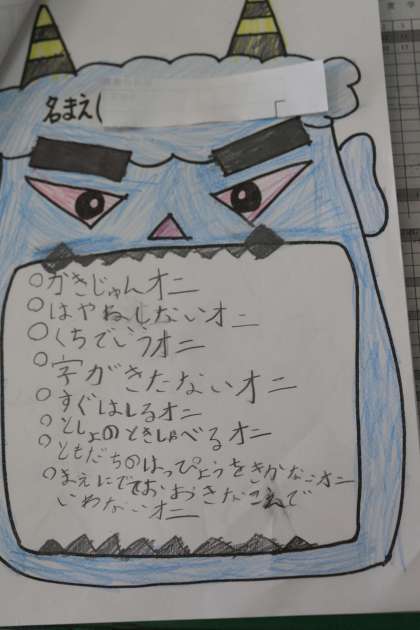 名まえ(
○かきじゅんオニ
○はやねしないオニ
○くちでいうオニ
○字がきたないオニ
○すぐはしるオニ
○としょのときしゃべるオニ
○ともだちのはっぴょうをきかないオニ
○まえにでておおきなこえで
いわないオニ